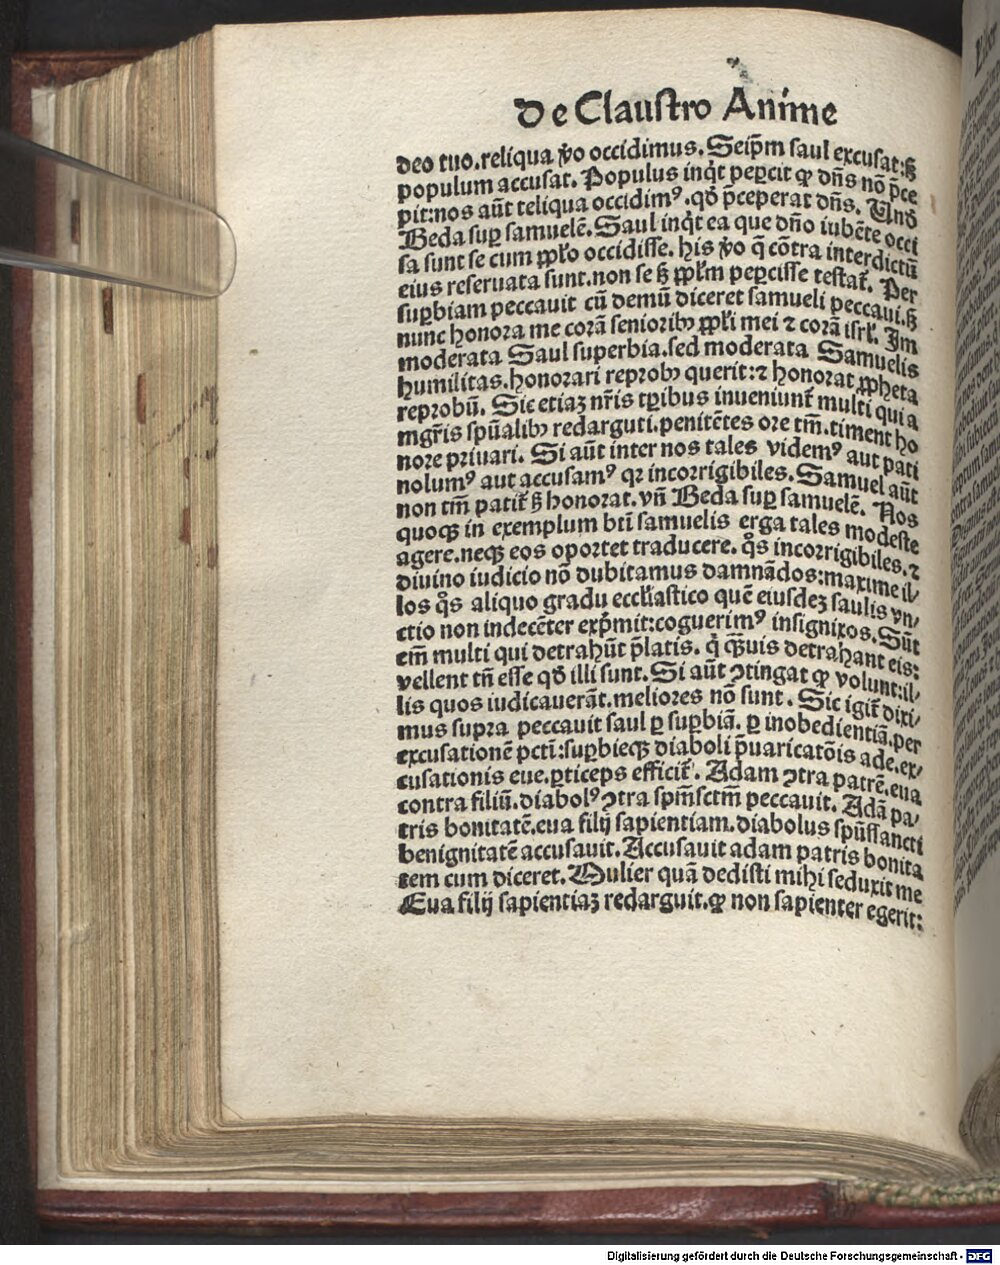 De Claustro Anime
deo tuo.reliqua v̾o occidimus.Seip̄m saul excusat:ꝫ
populum accusat. Populus inqͥt peꝑcit qꝛ dn̄s nō p̄ce
pit:nos aūt teliqua occidimꝰ.qd̄ p̄ceperat dn̄s. Vnd̄
Beda suꝑ samuelē.Saul inqͥt ea que dn̄o iubēte occi
sa sunt se cum ꝓpl̓o occidisse. his v̾o q̄ cōtra interdictū
eius reseruata sunt.non se ꝫ ꝓpl̓m peꝑcisse testat᷑. Per
suꝑbiam peccauit cū demū diceret samueli peccaui.ꝫ
nunc honora me corā seniorib⁹ ꝓpl̓i mei ⁊ corā isrl̓. Im
moderata Saul superbia.sed moderata Samuelis
humilitas.honorari reprob⁹ querit:⁊ honorat ꝓpheta
reprobū. Sic etiaꝫ nr̄is tp̄ibus inueniunt᷑ multi qui a
mgr̄is spūalib⁹ redarguti.penitētes ore tm̄.timent ho
nore priuari. Si aūt inter nos tales videmꝰ aut pati
nolumꝰ aut accusamꝰ qꝛ incorrigibiles. Samuel aūt
non tm̄ patit᷑ ꝫ honorat. vn̄ Beda suꝑ samuelē. Nos
quoqꝫ in exemplum bt̄i samuelis erga tales modeste
agere.neqꝫ eos oportet traducere. qͦs incorrigibiles.⁊
diuino iudicio nō dubitamus damnādos:maxime il/
los qͦs aliquo gradu eccl̓iastico quē eiusdeꝫ saulis vn/
ctio non indecēter exp̄mit:coguerimꝰ insignixos.Sūt
em̄ multi qui detrahūt p̄latis. q̄ qꝫuis detrahant eis:
vellent tn̄ esse qd̄ illi sunt.Si aūt ↄtingat qꝛ volunt:il/
lis quos iudicauerāt.meliores nō sunt. Sic igit᷑ dixi/
mus supra peccauit saul ꝑ suꝑbiā. ꝑ inobedientiā.per
excusationē pctī:suꝑbieqꝫ diaboli p̄uaricatōis ade.ex/
cusationis eue.ꝑticeps efficit᷑. Adam ↄtra patrē.eua
contra filiū.diabolꝰ ↄtra spm̄sctm̄ peccauit. Adā pa/
tris bonitatē.eua filij sapientiam.diabolus spūssancti
benignitatē accusauit.Accusauit adam patris bonita
tem cum diceret.Mulier quā dedisti mihi seduxit me
Eua filij sapientiaꝫ redarguit.qꝛ non sapienter egerit:
Digitalisierung gefördert durch die Deutsche Forschungsgemeinschaft - DFG